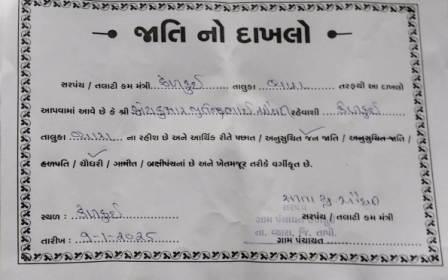 જાતિ નો દાખલો
સરપંચ / તલાટી કમ મંત્રી તાલુકા વ્યારા તરફથી આ દાખલો
આપવામાં આવે છે કે શ્રી રહેવાશી
તાલુકા વ્યારા ના રહીશ છે અને આર્થિક રીતે પછાત / અનુસુચિત જન જાતિ / અનુસુચિત જાતિ /
હળપતિ / ચૌધરી / ગામીત / બક્ષીપંચનાં છે અને ખેતમજૂર તરીકે વર્ગીકૃત છે.
સ્થળ :
સરપંચ
ગ્રામ પંચાયત સરપંચ / તલાટી કમ મંત્રી
તા. વ્યારા, જિ. તાપી.
તારીખ : 9-1-2025 ગ્રામ પંચાયત